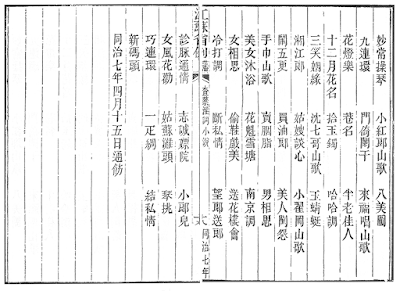 妙常操琴 小紅郎山歌 八美圖
九連環 門倚闌干 來福唱山歌
花燈樂 巷名 半老佳人
十二月花名 拾玉鐲 哈哈調
三笑姻緣 沈七哥山歌 玉蜻蜓
湘江郎 姑嫂談心 小瞿岡山歌
鬧五更 賣油郎 美人鬧怨
手巾山歌 賣胭脂 男相思
美女沐浴 花魁雪塘 南京調
女相思 偷鞋戲美 送花樓會
冷打調 斷私情 望郎送郎
江蘇省例 藩 查禁淫詞小說 六 同治七年
診脈通情 志誠嫖院 小郎兒
女風花勸 姑蘇灘頭 琴挑
巧連環 一疋綢 結私情
新碼頭
同治七年四月十五日通飭